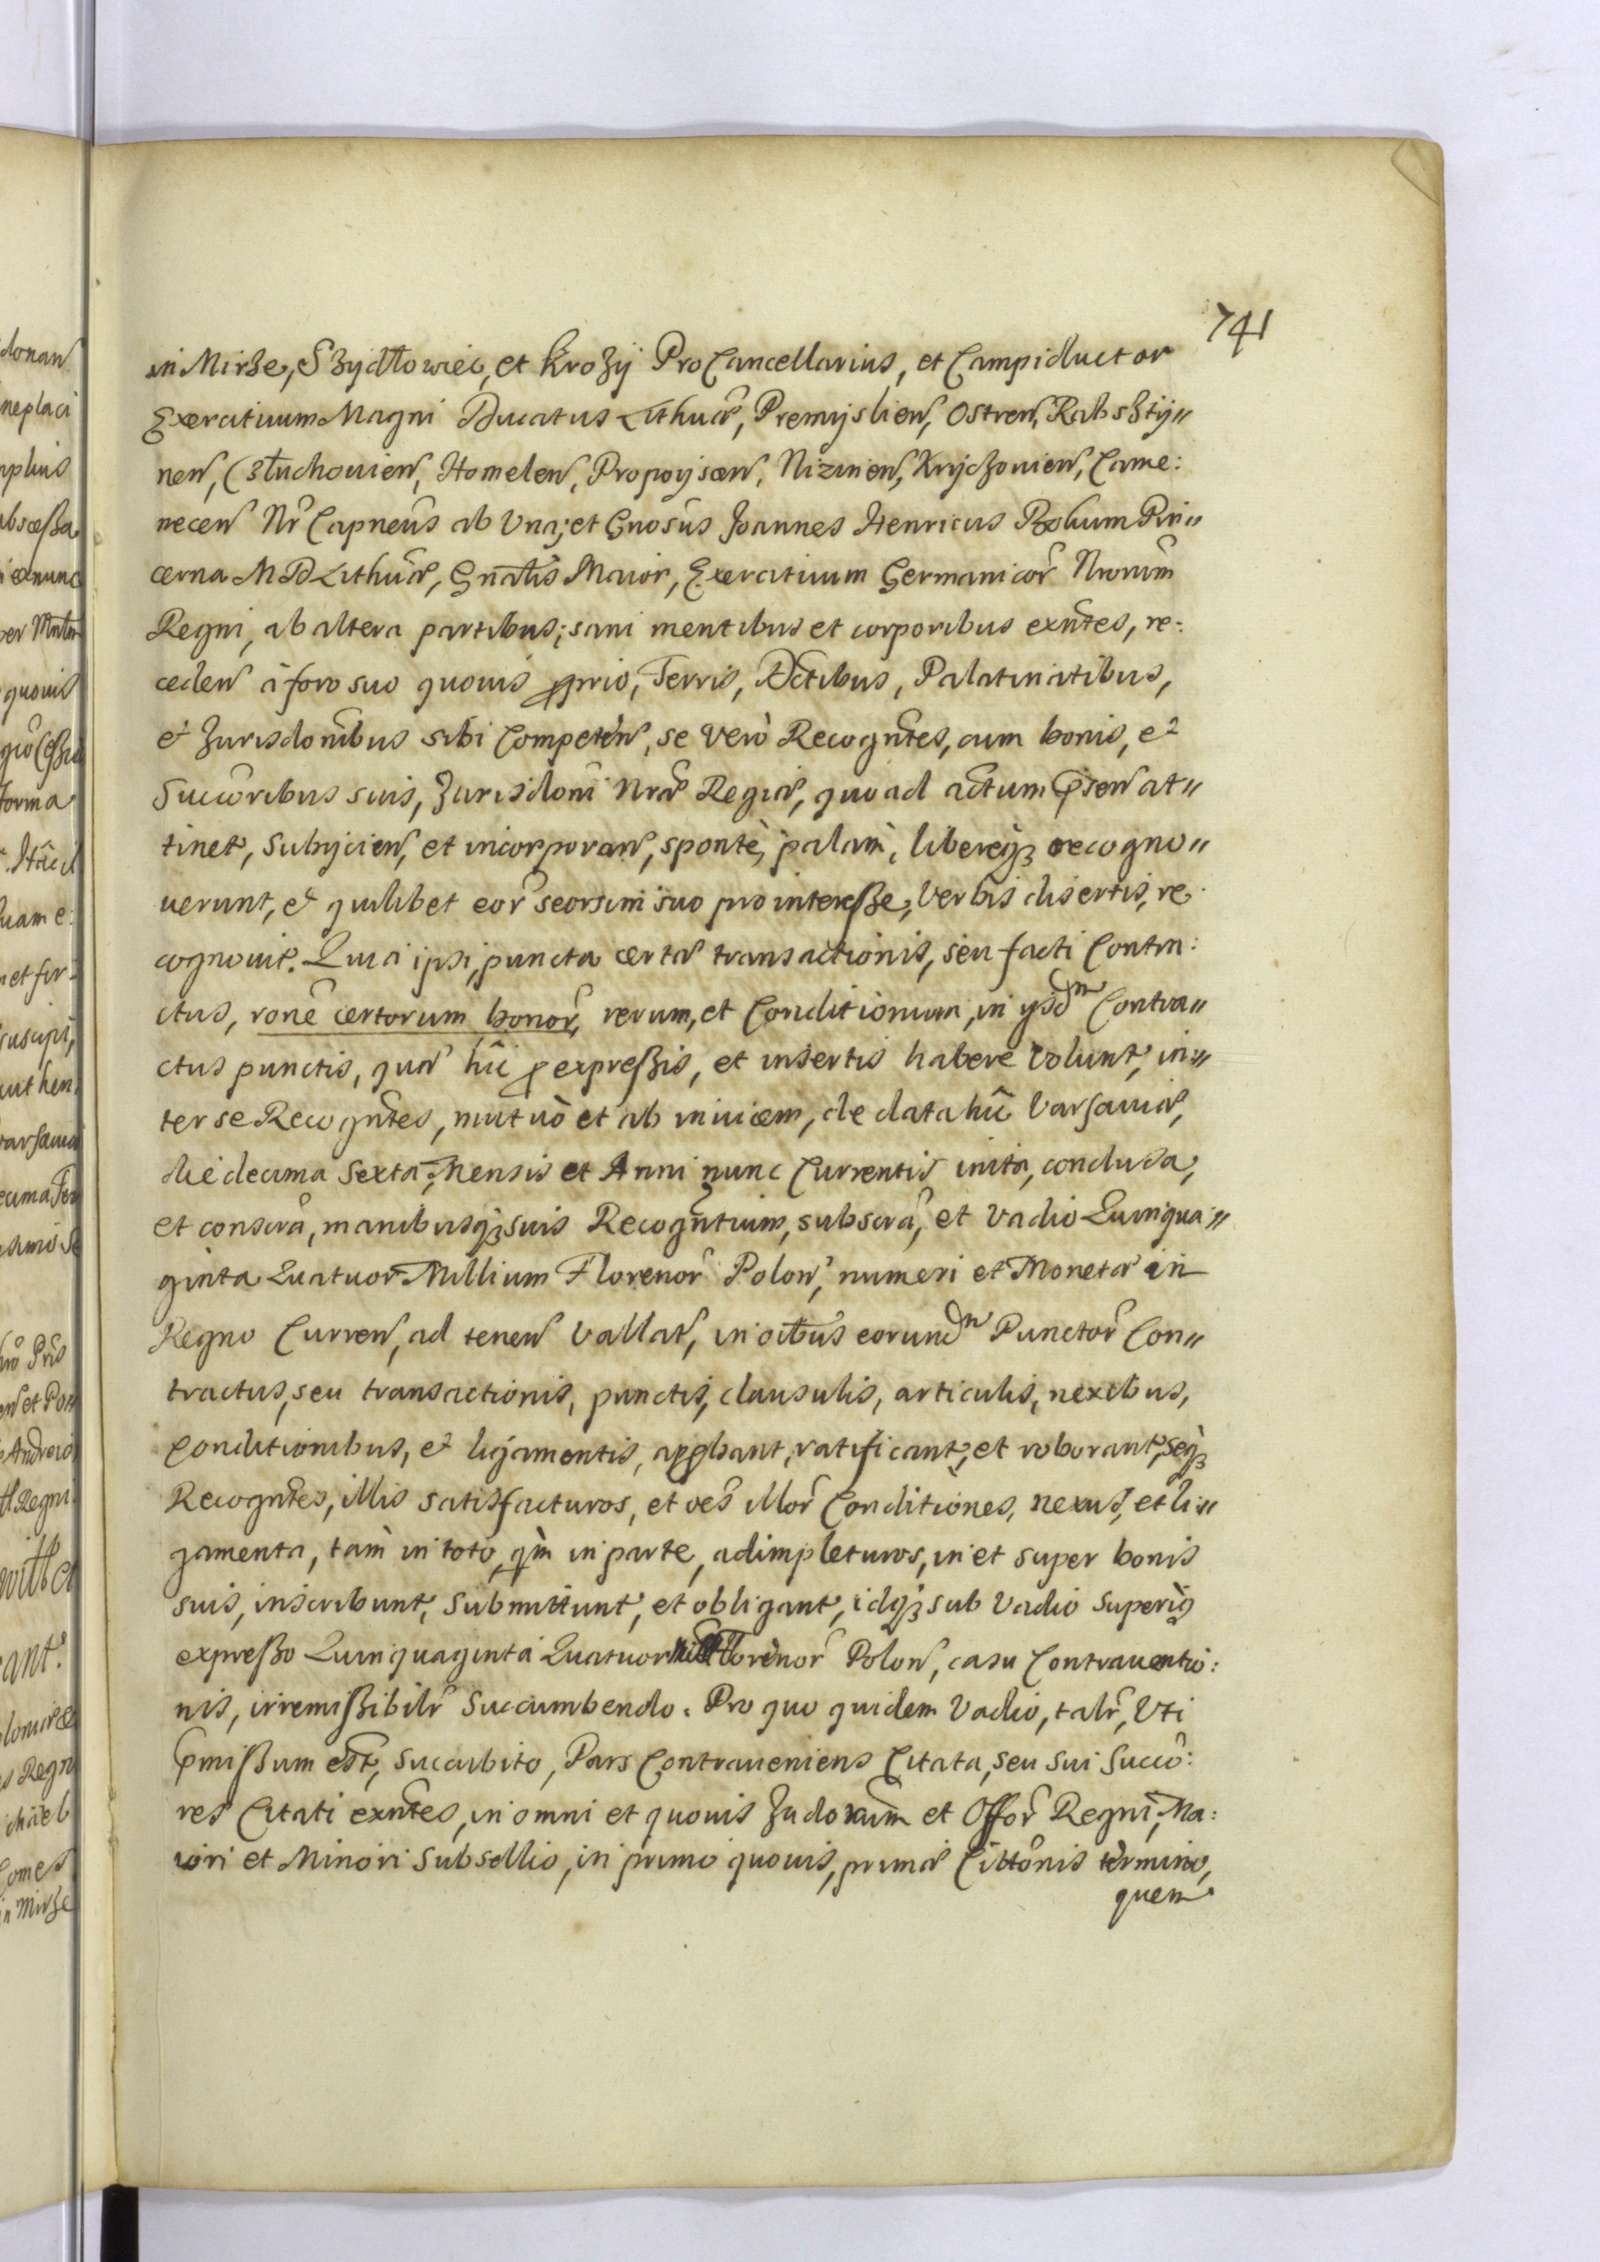 741
in Mirze, Szydłowiec, et Krozij ProCancellarius, et Campiductor
Exercituum Magni Ducatus Lithuae, Premyslien, Ostren, Rabsztÿ„
nen, Człuchouien, Homelen, Propoyscen, Nizinien, Krÿczouien, Came:
necen Nr Capneus ab Vna; et Gnosus Joannes Henricus Bohum Pin„
cerna M D Lithuae, Gnalis Maior, Exercituum Germanicor Nrorum
Regni, ab altera partibus; sani mentibus et corporibus exntes, re:
ceden à foro suo quouis proprio, Terris, Dctibus, Palatinatibus,
et Jurisdonibus sibi Competen, se vero Recogntes, cum bonis, et
Succoribus suis, Jurisdoni Nrae Regiae, quo ad actum psen at„
tinet, subijcien, et incorporan, sponte, palam, libereq3 recogno„
uerunt, et quilibet eor seorsim suo pro interesse, verbis disertis, re
cognouit. Quia ipsi, puncta certae transactionis, seu facti Contra:
ctus, rone certorum bonor, rerum, et Conditionum, in ysdm Contra„
ctus punctis, quae hic pro expressis, et insertis habere volunt, in„
ter se Recogntes, mutuò et ab inuicem, de data hic Varsauiae,
die decima Sexta, Mensis et Anni nunc Currentis inita, conclusa,
et conscra, manibusq3 suis Recogntium, subscra, et Vadio Quinqua„
ginta Quatuor Millium Florenor Polon, numeri et Monetae in
Regno Curren, ad tenen Vallat, in oibus eorundm Punctor Con„
tractus, seu transactionis, punctis, clausulis, articulis, nexibus,
Conditionibus, et ligamentis, approbant, ratificant, et roborant, seq3
Recogntes, illis satisfacturos, et oes illor Conditiones, nexus, et li„
gamenta, tam in toto, qm in parte, adimpleturos, in et super bonis
suis, inscribunt, submittunt, et obligant, idq3 sub Vadio Superius
expresso Quinquaginta Quatuor Mill Florenor Polon, casu Contrauentio:
nis, irremissibilr succumbendo. Pro quo quidem Vadio, talr, Vti
pmissum est, succubito, Pars Contraueniens Citata, seu sui Succo:
res Citati exntes, in omni et quouis Judorum et Offor Regni, Ma:
iori et Minori Subsellio, in primo quouis, primae Cittonis termino,
quem